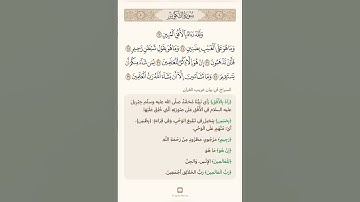 سُورَةُ التَّكْوِيرِ
وَلَقَدْ رَآهُ بِالْأُفُقِ الْمُبِينِ ﴿٢٣﴾
وَمَا هُوَ عَلَى الْغَيْبِ بِضَنِينٍ ﴿٢٤﴾ وَمَا هُوَ بِقَوْلِ شَيْطَانٍ رَجِيمٍ ﴿٢٥﴾
فَأَيْنَ تَذْهَبُونَ ﴿٢٦﴾ إِنْ هُوَ إِلَّا ذِكْرٌ لِلْعَالَمِينَ ﴿٢٧﴾ لِمَنْ شَاءَ مِنْكُمْ أَنْ
يَسْتَقِيمَ ﴿٢٨﴾ وَمَا تَشَاءُونَ إِلَّا أَنْ يَشَاءَ اللَّهُ رَبُّ الْعَالَمِينَ ﴿٢٩﴾
السراج في بيان غريب القرآن
﴿رَآهُ بِالْأُفُقِ﴾ رَأَى نَبِيُّنَا مُحَمَّدٌ صلَّى الله عليه وسلم جِبْرِيلَ
عليه السلام في الْأُفُقِ عَلَى صُورَتِهِ الَّتِي خُلِقَ عَلَيْهَا.
﴿بِضَنِينٍ﴾ بِبَخِيلٍ فِي تَبْلِيغِ الْوَحْيِ، وَفِي قِرَاءَةٍ: (بِظَنِينٍ)،
أَيْ: مُتَّهَمٍ عَلَى الْوَحْيِ.
﴿رَجِيمٍ﴾ مَرْجُومٍ، مَطْرُودٍ مِنْ رَحْمَةِ اللَّهِ.
﴿إِنْ هُوَ﴾ مَا هُوَ.
﴿لِلْعَالَمِينَ﴾ الْإِنْسِ، وَالْجِنِّ.
﴿رَبُّ الْعَالَمِينَ﴾ رَبُّ الْخَلَائِقِ أَجْمَعِينَ.